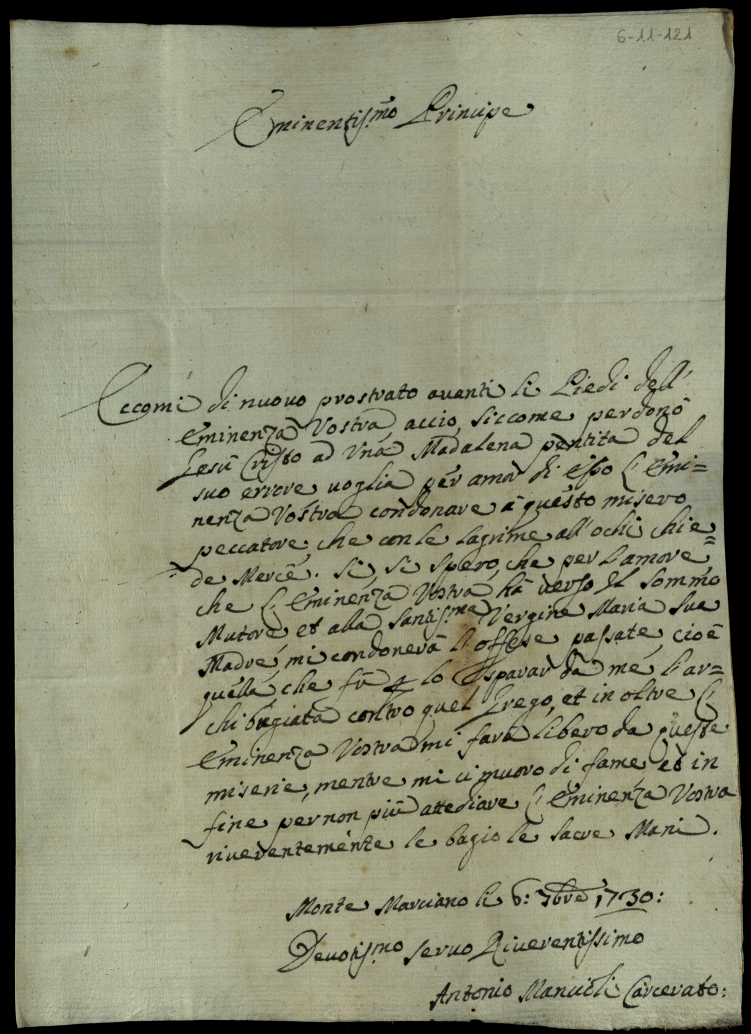 6-11-121
Eminentis.mo Principe
Eccomi di nuovo prostrato avanti li Piedi dell'
Eminenza Vostra acciò, siccome perdonò
Gesù Cristo ad Vna Madalena pentita del
suo errore voglia per amor di esso l'Emi=
nenza Vostra condonare à questo misero
peccatore, che con le lagrime all'ochi chie=
de Mercè. Si, si spero, che per l'amore,
che l'Eminenza Vostra hà verso il sommo
Autore, et alla santis.ma Vergine Maria sua
Madre, mi condonerà l'offese passate, cioè
quella che fù lo sparar da me l'ar=
chibugiata contro quel Grego, et in oltre l'
Eminenza Vostra mi farà libero da queste
miserie, mentre mi ci muoro di fame, et in
fine per non più attediare l'Eminenza Vostra
riverentemente le bagio le sacre Mani.
Monte Marciano li 6: 7bre 1730:
Devotis.mo servo Riverentissimo
Antonio Carcerato: